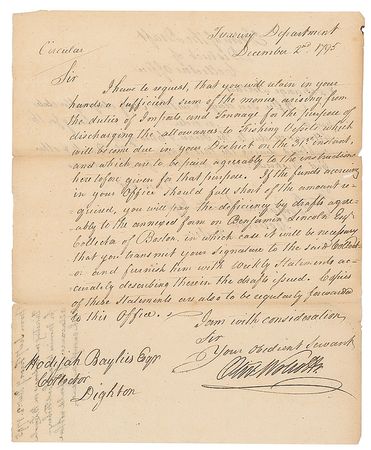 Treasury Department
December 2nd 1795
Circular
Sir
I have to request, that you will retain in your
hands a sufficient sum of the monies arising from
the duties of Imposts and Tonnage for the purpose of
discharging the allowances to Fishing Vessels which
will become due in your District on the 31st instant,
and which are to be paid agreeably to the instructions
heretofore given for that purpose. If the funds accruing
in your Office should fall short of the amount re-
quired, you will pay the deficiency by drafts agree-
ably to the annexed form on Benjamin Lincoln Esqr
Collector of Boston, in which case it will be necessary
that you transmit your signature to the said Collect-
or and furnish him with Weekly Statements ac-
curately describing therein the drafts issued. Copies
of these Statements are also to be regularly forwarded
to this Office.
I am with consideration
Sir
Your Obedient Servant
Oliv Wolcott
Hodijah Baylies Esqr
Collector
Dighton